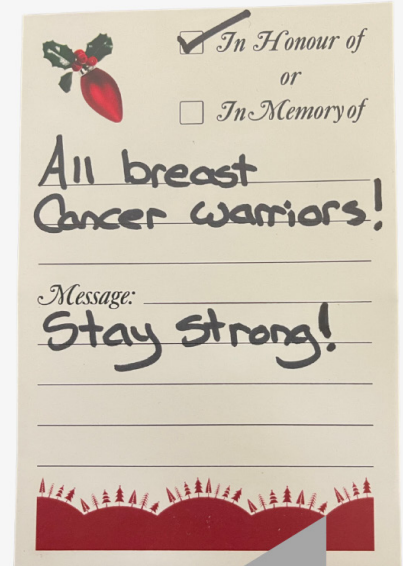 In Honour of
or
In Memory of
All breast
Cancer warriors!
Message:
Stay strong!